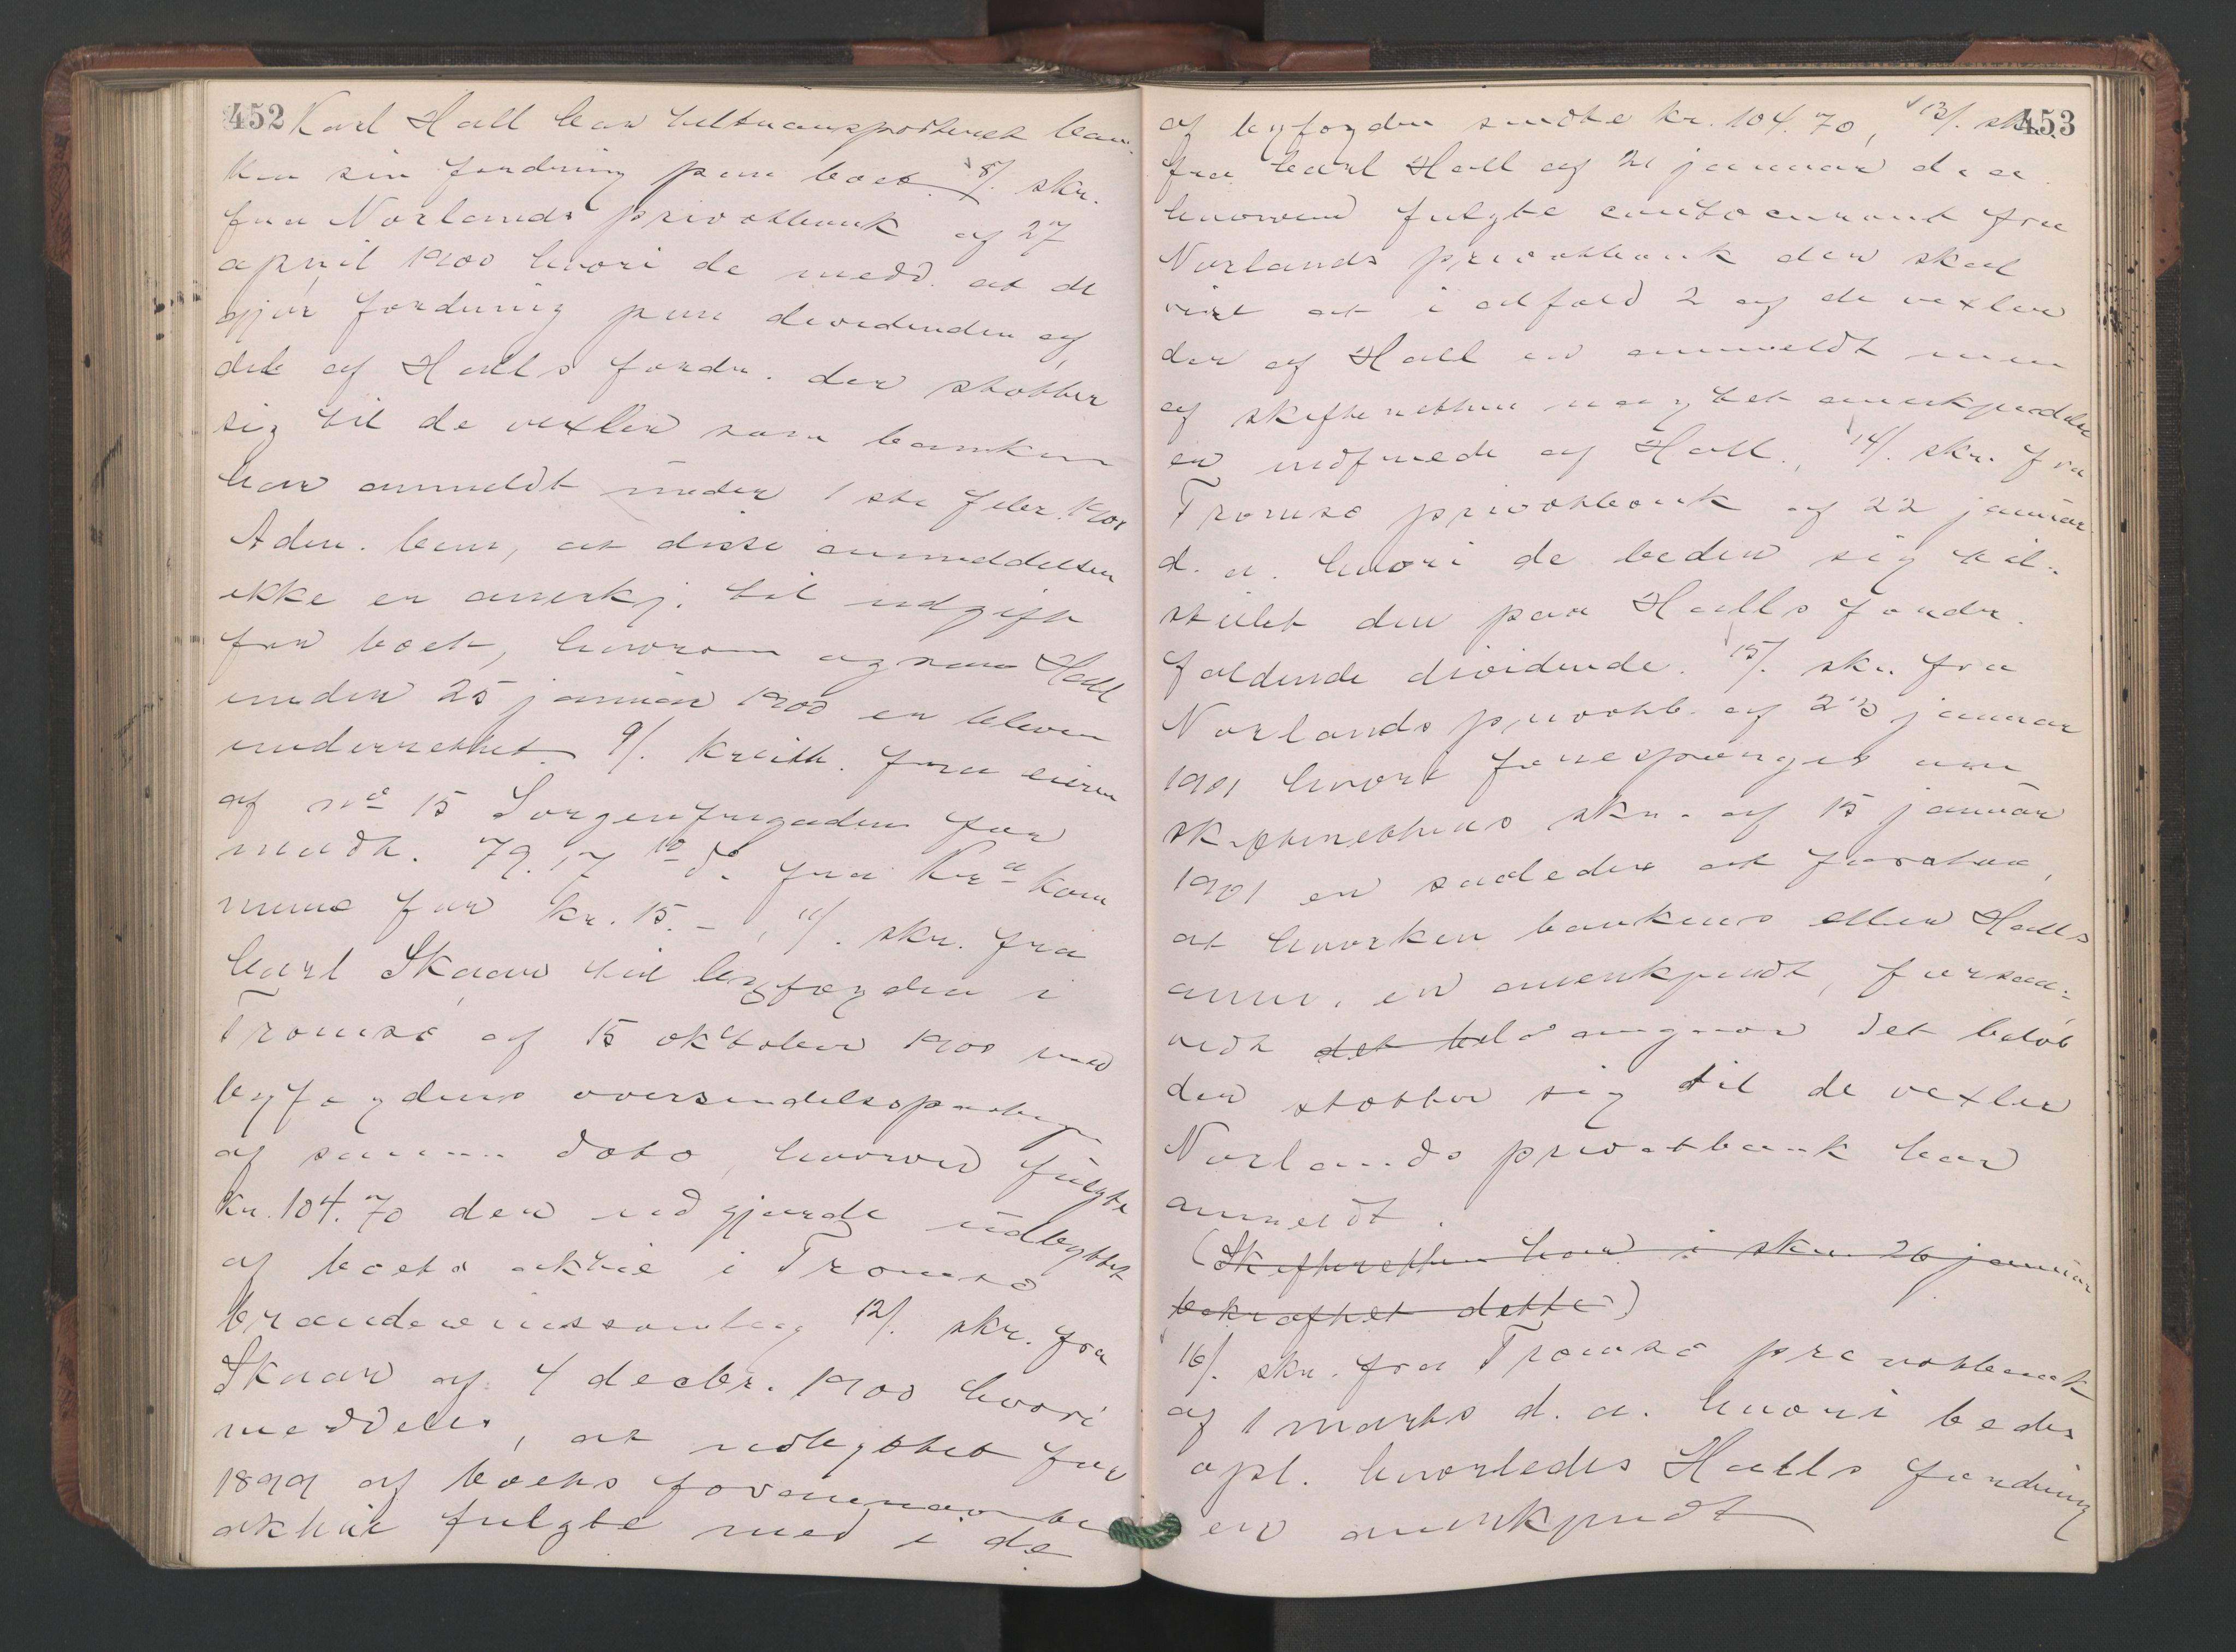 452
Karl Hall har tiltransporteret ban-
ken sin fordring paa boet. 8/. skr.
fra Norlands privatbank af 27
april 1900 hvori de medd. at de
gjør fordring paa dividenden af
del af Halls fordr. der støtter
sig til de vexler som banken
har anmeldt under 1ste febr. 1900
Adm. bem, at disse anmeldelser
ikke er anerkj. til udgift
for boet, hvorom ogsaa Hall
under 25 januar 1900 er bleven
underrettet. 9/. kvitt. fra eieren
af no 15 Sorgenfrigaden for
modt. 79.17 10 do. fra Kra kom
mune for kr. 15.-, 11/. skr. fra
Carl Skaar til byfogden i
Tromsø af 15 oktober 1900 med
byfogdens oversendelsespaategn
af samme dato, hvorved fulgte
kr. 104.70 der udgjorde udbyttet
af boets aktie i Tromsø
brændevinssamlag 12/. skr. fra
Skaar af 4 decbr. 1900 hvori
meddeles, at udbyttet for
1899 af boets forannævnte
aktie fulgte med i de
453
af byfogden sendte kr. 104.70, 13/. skr.
fra Carl Hall af 21 januar d. a.
hvorved fulgte contocurant fra
Norlands privatbank der skal
vise at i alfald 2 af de vexler
der af Hall er anmeldt men
af skifteretten nægtet anerkjendelse
er indfriede af Hall., 14/. skr. fra
Tromsø privatbank af 22 januar
d. a. hvori de beder sig til-
stillet den paa Halls fordr.
faldende dividende. 15/. skr. fra
Norlands privatb. af 23 januar
1901 hvori forespørges om
skifterettens skr. af 15 januar
1901 er saaledes at forstaa,
at hverken bankens eller Halls
anm. er anerkjendt, forsaa-
vidt det hele angaar det beløb
der støtter sig til de vexler
Norlands privatbank har
anmeldt.
(Skifteretten har i skr. 26 januar
bekræftet dette)
16/. skr. fra Tromsø privatbank
af 1 marts d. a. hvori bedes
opl. hvorledes Halls fordring
er anerkjendt